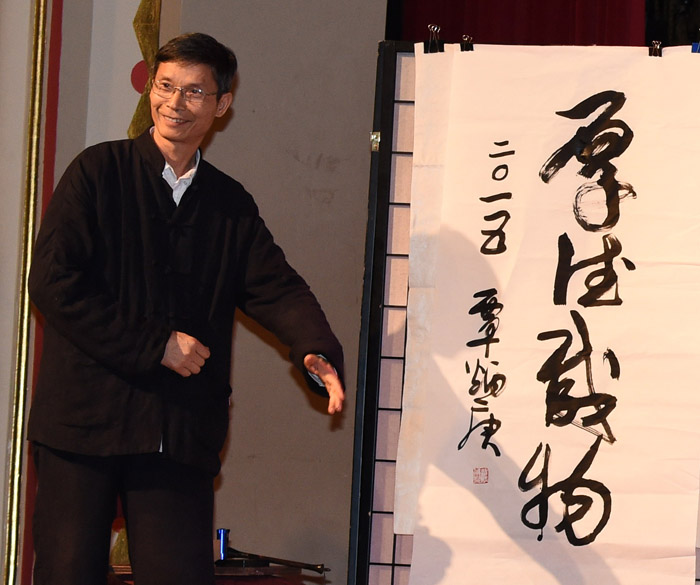 厚德载物
二〇一五
覃炳庚